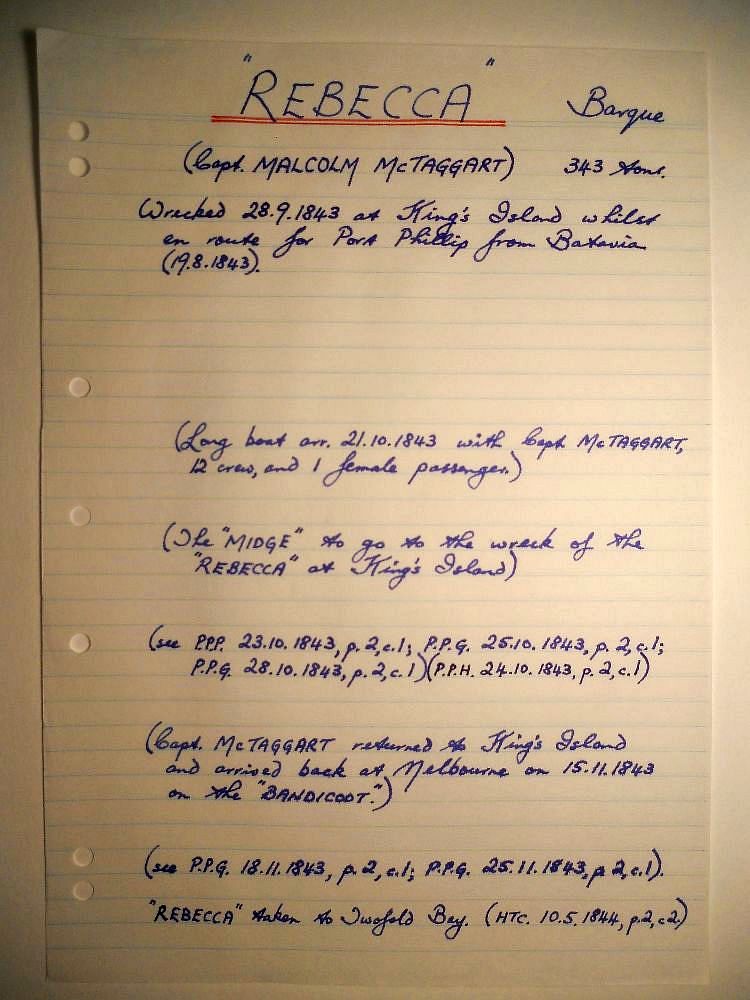 "REBECCA" Barque
(Capt. MALCOLM McTAGGART) 343 tons.
Wrecked 28.9.1843 at King's Island whilst
en route for Port Phillip from Batavia
(19.8.1843).
(Long boat arr. 21.10.1843 with Capt. McTAGGART,
12 crew, and 1 female passenger.)
(The "MIDGE" to go to the wreck of the
"REBECCA" at King's Island)
(see P.P.P. 23.10.1843, p.2, c.1; P.P.G. 25.10.1843, p.2, c.1;
P.P.G. 28.10.1843, p.2, c.1) (P.P.H. 24.10.1843, p.2, c.1)
(Capt. McTAGGART returned to King's Island
and arrived back at Melbourne on 15.11.1843
on the "BANDICOOT.")
(see P.P.G. 18.11.1843, p.2, c.1; P.P.G. 25.11.1843, p.2, c.1).
"REBECCA" taken to Twofold Bay. (HTC. 10.5.1844, p.2, c.2.)